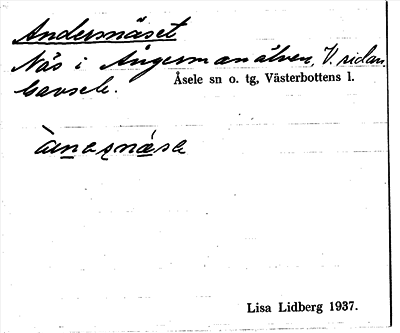 Andersnäset
Näs i Ångermanälven, V. sidan.
Gavsele.
Åsele sn o. tg, Västerbottens l.
Lisa Lidberg 1937.